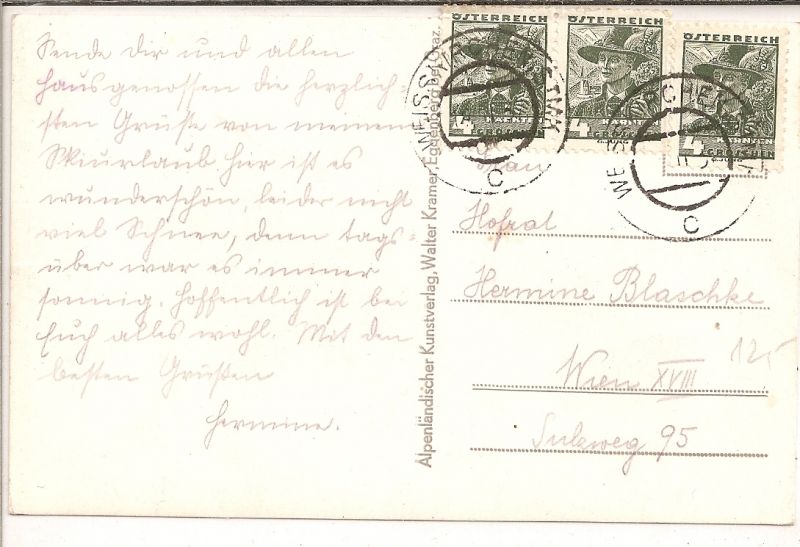 Sende Dir und allen
Hausgenossen die herzlich-
sten Grüße von meinem
Skiurlaub hier ist es
wunderschön, leider nicht
viel Schnee, denn tags-
über war es immer
sonnig. Hoffentlich ist bei
Euch alles wohl. Mit den
besten Grüßen
Hermine.
Alpenländischer Kunstverlag, Walter Kramer, Eggenberg bei Graz.
ÖSTERREICH
KÄRNTEN
4 GROSCHEN
ÖSTERREICH
KÄRNTEN
4 GROSCHEN
ÖSTERREICH
KÄRNTEN
4 GROSCHEN
C
C
Frau
Hofrat
Hermine Blaschke
Wien XVIII
Sulzweg 95
125